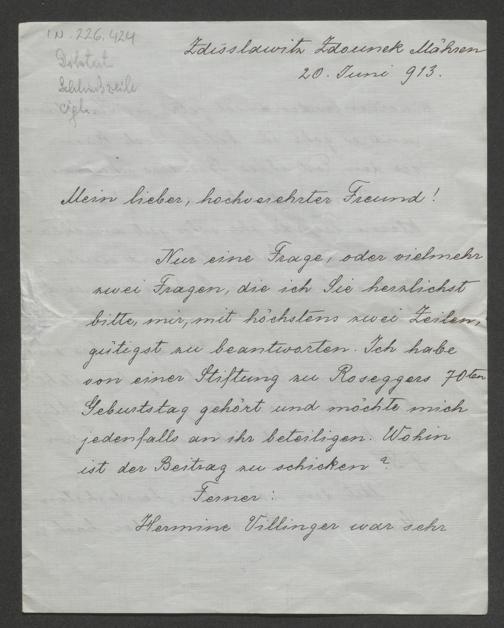 I.N. 226.424
Diktat
Schlußzeile
eigh.
Zdisslawitz Zdounek Mähren
20. Juni 913.
Mein lieber, hochverehrter Freund!
Nur eine Frage, oder vielmehr
zwei Fragen, die ich Sie herzlichst
bitte, mir, mit höchstens zwei Zeilen,
gütigst zu beantworten. Ich habe
von einer Stiftung zu Roseggers 70ten
Geburtstag gehört und möchte mich
jedenfalls an ihr beteiligen. Wohin
ist der Beitrag zu schicken?
Ferner:
Hermine Villinger war sehr